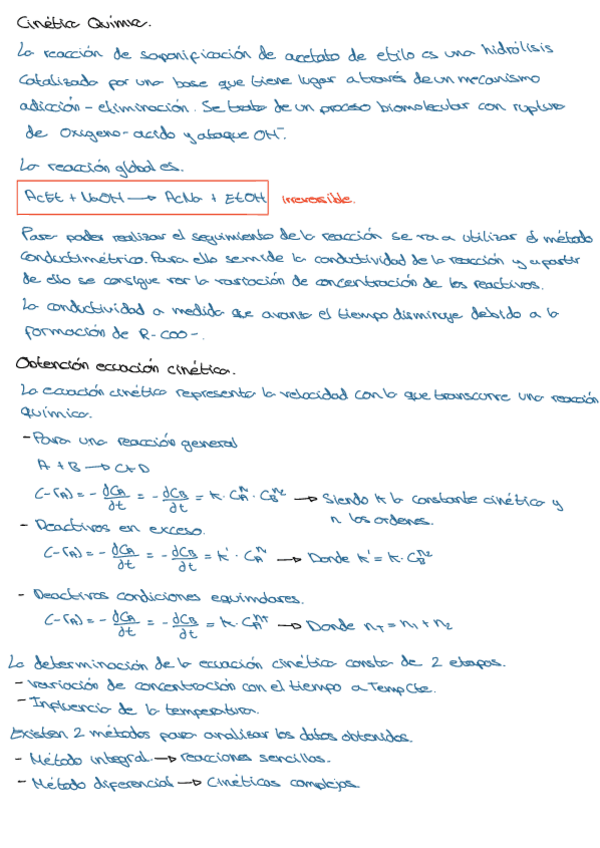 Cinética Química.
La reacción de saponificación de acetato de etilo es una hidrólisis
catalizada por una base que tiene lugar a través de un mecanismo
adicción - eliminación. Se trata de un proceso biomolecular con ruptura
de Oxígeno - acido y ataque OH⁻.
La reacción global es.
AcEt + NaOH → AcNa + EtOH Irreversible.
Para poder realizar el seguimiento de la reacción se va a utilizar el método
conductimétrico. Para ello se mide la conductividad de la reacción y a partir
de ello se consigue ver la variación de concentración de los reactivos.
La conductividad a medida que avanza el tiempo disminuye debido a la
formación de R-COO-.
Obtención ecuación cinética.
La ecuación cinética representa la velocidad con la que transcurre una reacción
química.
- Para una reacción general
A + B → C + D
(-rA) = - dCA/dt = - dCB/dt = k · CA^n1 · CB^n2 → Siendo k la constante cinética y
n los ordenes.
- Reactivos en exceso.
(-rA) = - dCA/dt = - dCB/dt = k' · CA^n1 → Donde k' = k · CB^n2
- Reactivos condiciones equimolares.
(-rA) = - dCA/dt = - dCB/dt = k · CA^nT → Donde nT = n1 + n2
La determinación de la ecuación cinética consta de 2 etapas.
- Variación de concentración con el tiempo a Temp Cte.
- Influencia de la temperatura.
Existen 2 métodos para analizar los datos obtenidos.
- Método integral → reacciones sencillas.
- Método diferencial → Cinéticas complejas